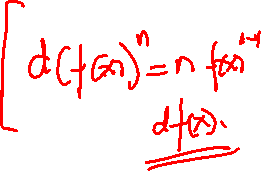 [ d(f(x))^n = n f(x)^{n-1}
df(x).